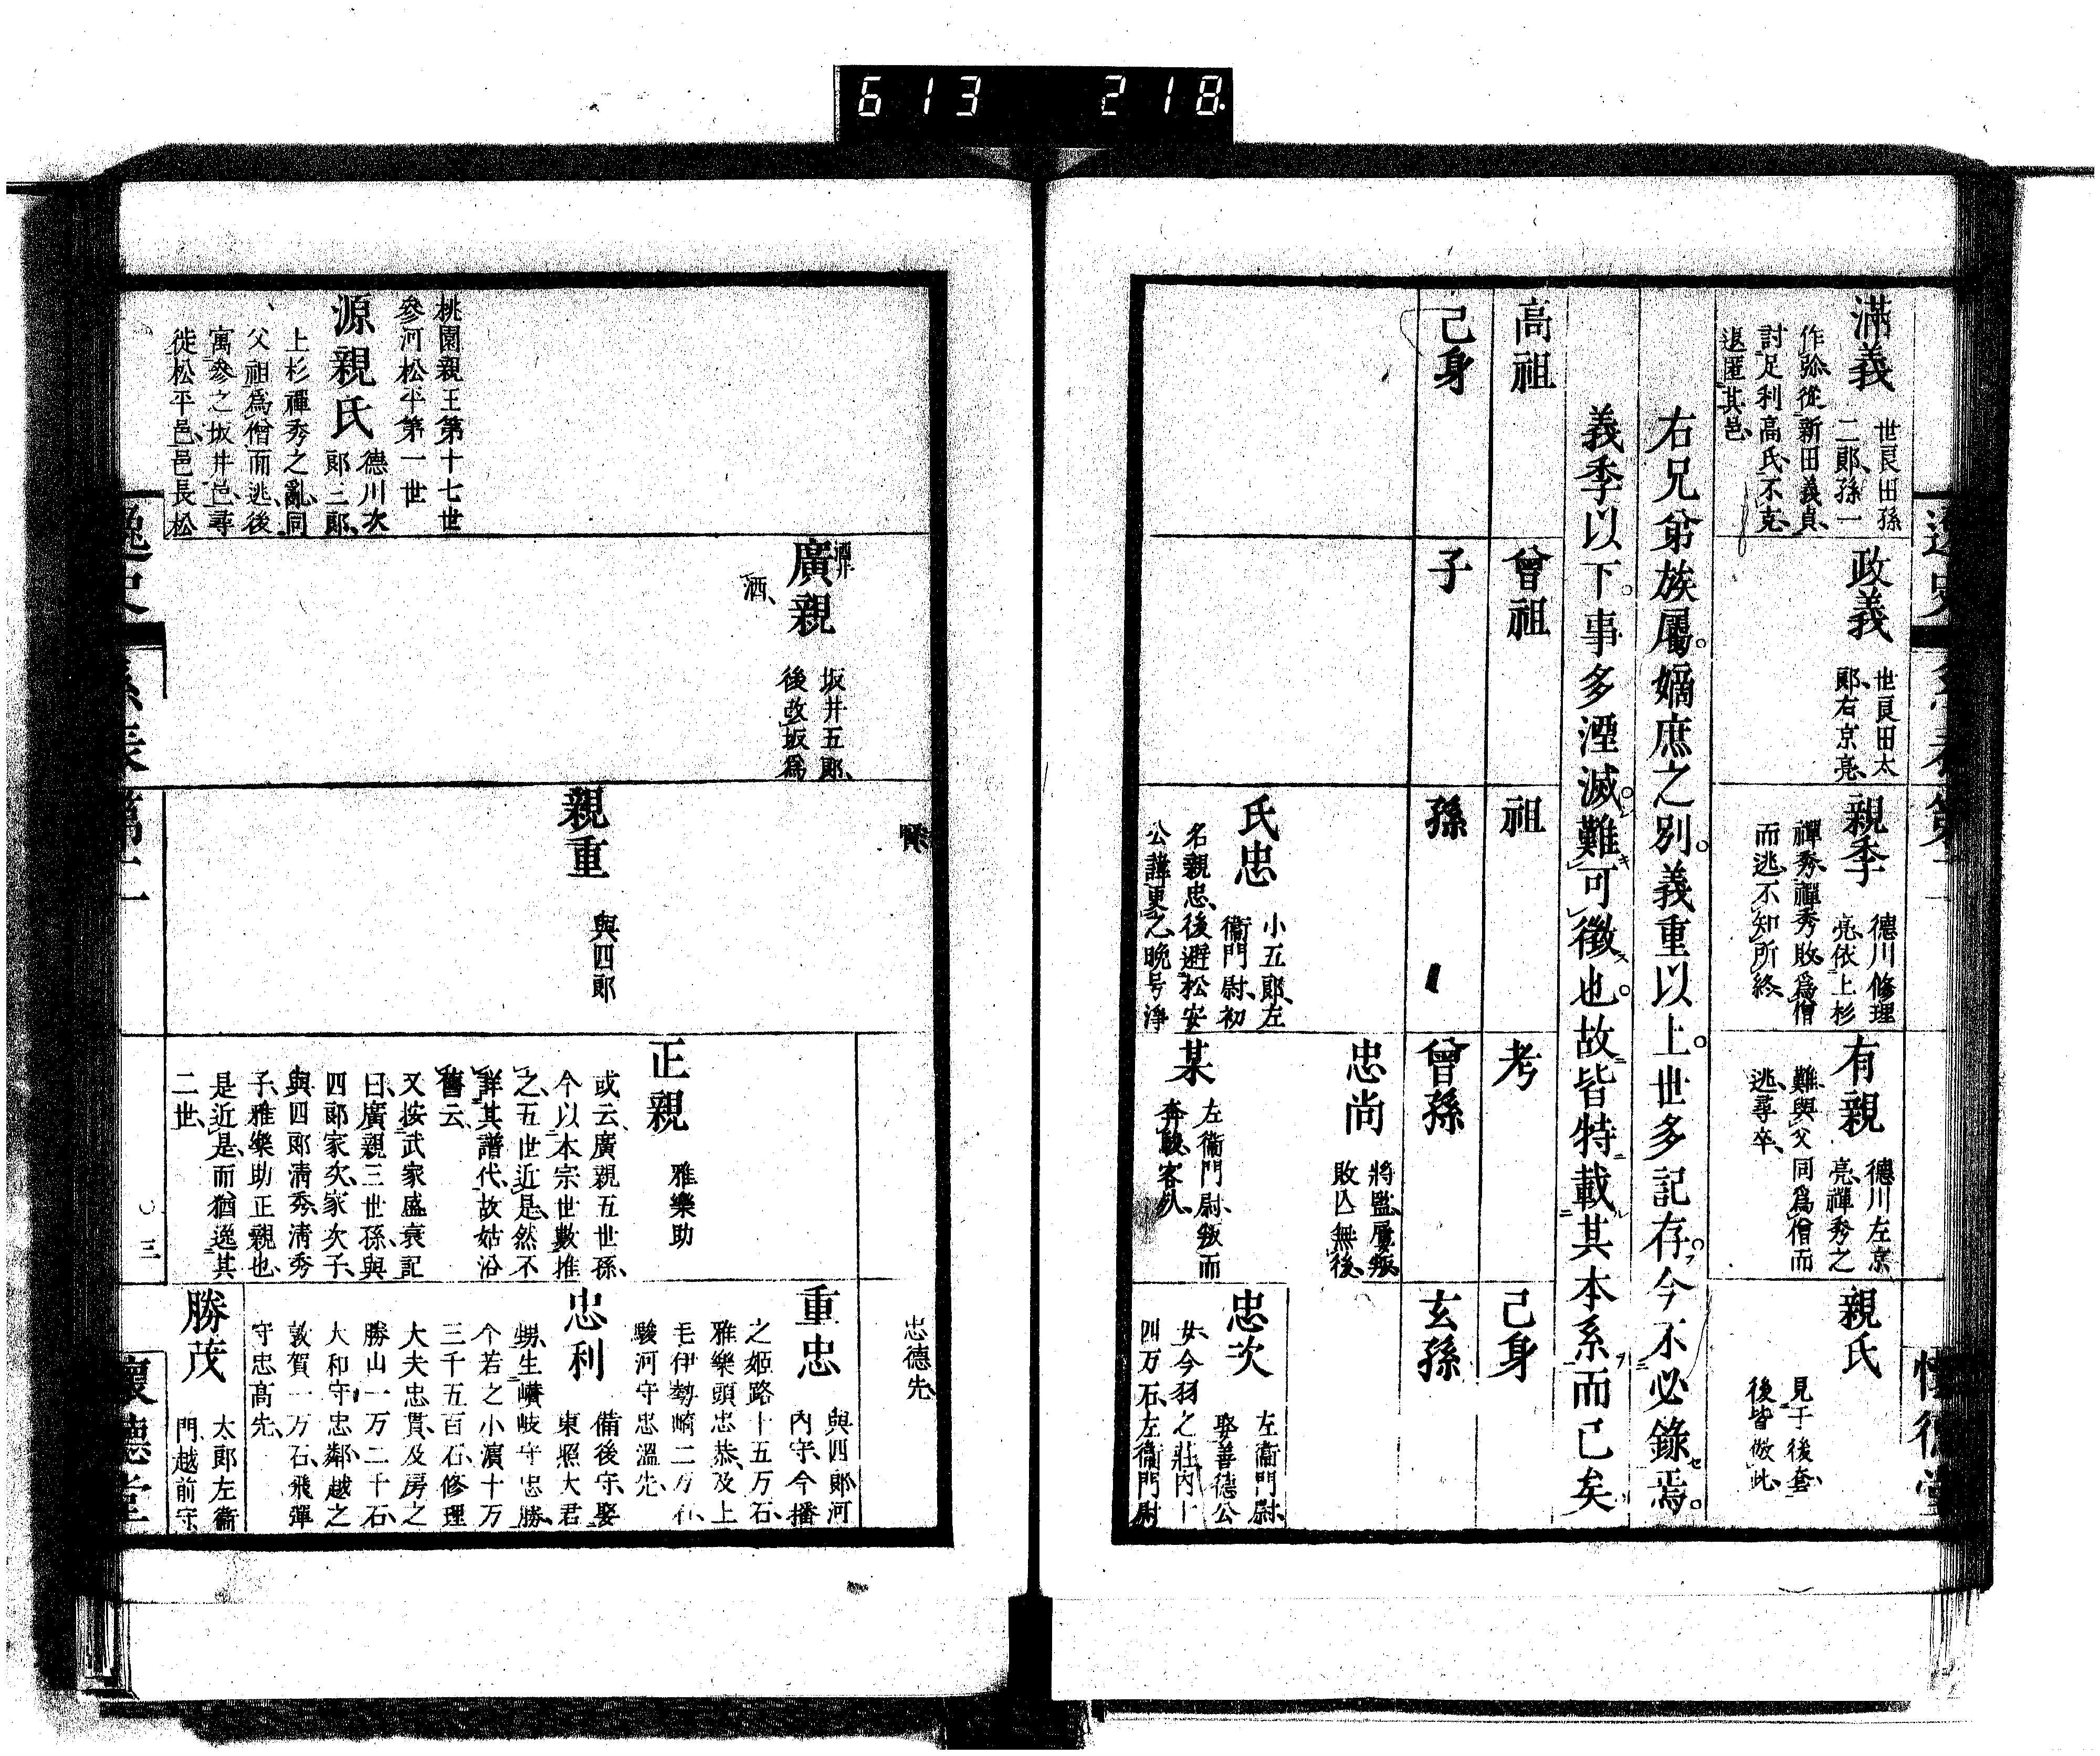 613 218
滿義
世良田孫
二郎、孫一
作弥從新田義貞、
討足利高氏、不克、
退匿其邑、
政義
世良田太
郎、右京亮、
親季
德川修理
亮、依上杉
禪秀、禪秀敗、爲僧
而逃、不知所終、
有親
德川左京
亮、禪秀之
難與父同爲僧而
逃、尋卒、
親氏
見于後套、
後皆倣此、
右兄弟族屬。嫡庶之別。義重以上。世多記存。今不必錄焉。
義季以下。事多湮滅。難可徵也。故皆特載其本系而已矣
高祖
曾祖
祖
考
己身
己身
子
孫
曾孫
玄孫
忠尚
將監、屢叛、
敗亾無後、
氏忠
小五郎、左
衞門尉、初
名親忠、後避松安
公諱更之、晚号淨
某
左衞門尉、叛而
奔駿、客久、
忠次
左衞門尉、
娶善德公
女、今羽之莊内十
四万石、左衞門尉
忠德先、
廣親
酒井
坂井五郎、
後改坂爲
酒、
親重
與四郎
正親
雅樂助
或云、廣親五世孫、
今以本宗世數推
之、五世近是、然不
詳其譜代、故姑沿
舊云、
又按武家盛衰記
曰、廣親三世孫、與
四郎家次、家次子、
與四郎淸秀、淸秀
子、雅樂助正親也、
是近是、而猶逸其
二世、
重忠
與四郎河
内守、今播
之姬路十五万石、
雅樂頭忠恭、及上
毛伊勢崎二万石、
駿河守忠溫先、
忠利
備後守、娶
東照大君
甥、生讃岐守忠勝、
今若之小濱十万
三千五百石、修理
大夫忠貫、及房之
勝山一万二千石、
大和守忠鄰、越之
敦賀一万石、飛彈
守忠髙先、
勝茂
太郎左衞
門、越前守、
桃園親王第十七世
參河松平第一世
源親氏
德川次
郎三郎、
上杉禪秀之亂、同
父祖爲僧而逃、後
寓參之坂井邑、尋
徙松平邑、邑長松
逸史
系表第一
三
懷德堂